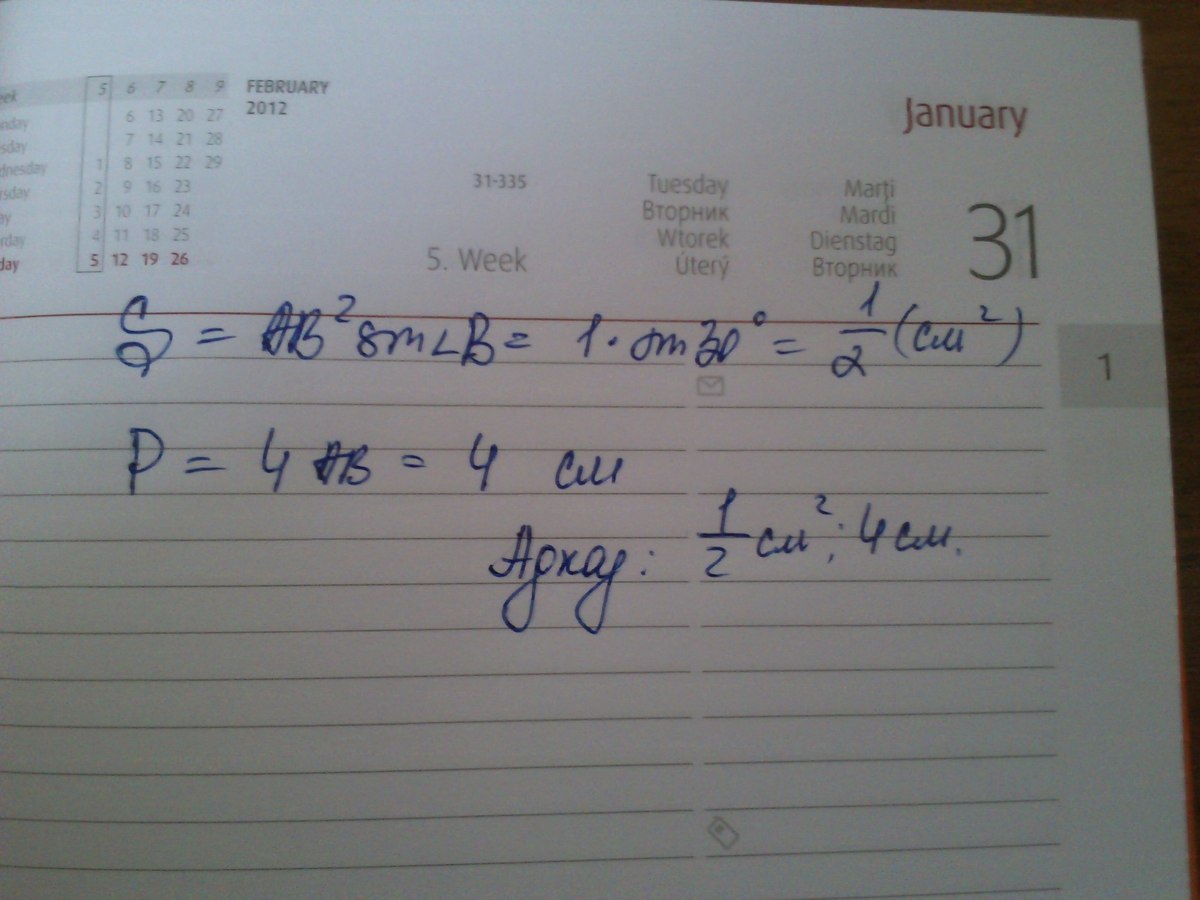 5 6 7 8 9 FEBRUARY
2012
eek
nday 6 13 20 27
sday 7 14 21 28
dnesday 1 8 15 22 29
rsday 2 9 16 23
ay 3 10 17 24
rday 4 11 18 25
day 5 12 19 26
January
31-335
5. Week
Tuesday Marți
Вторник Mardi
Wtorek Dienstag
Úterý Вторник
31
S = AB² sin∠B = 1·sin30° = 1/2 (см²)
1
P = 4 AB = 4 см
Адказ: 1/2 см²; 4 см.